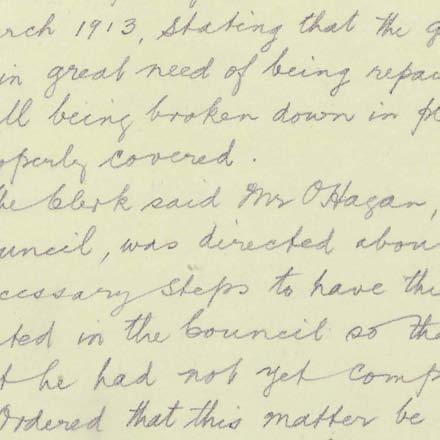 arch 1913, stating that the g
in great need of being repai
ll being broken down in pl
operly covered.
he Clerk said Mr O'Hagan,
uncil, was directed abou
cessary steps to have thi
ted in the Council so tha
t he had not yet comp
Ordered that this matter be